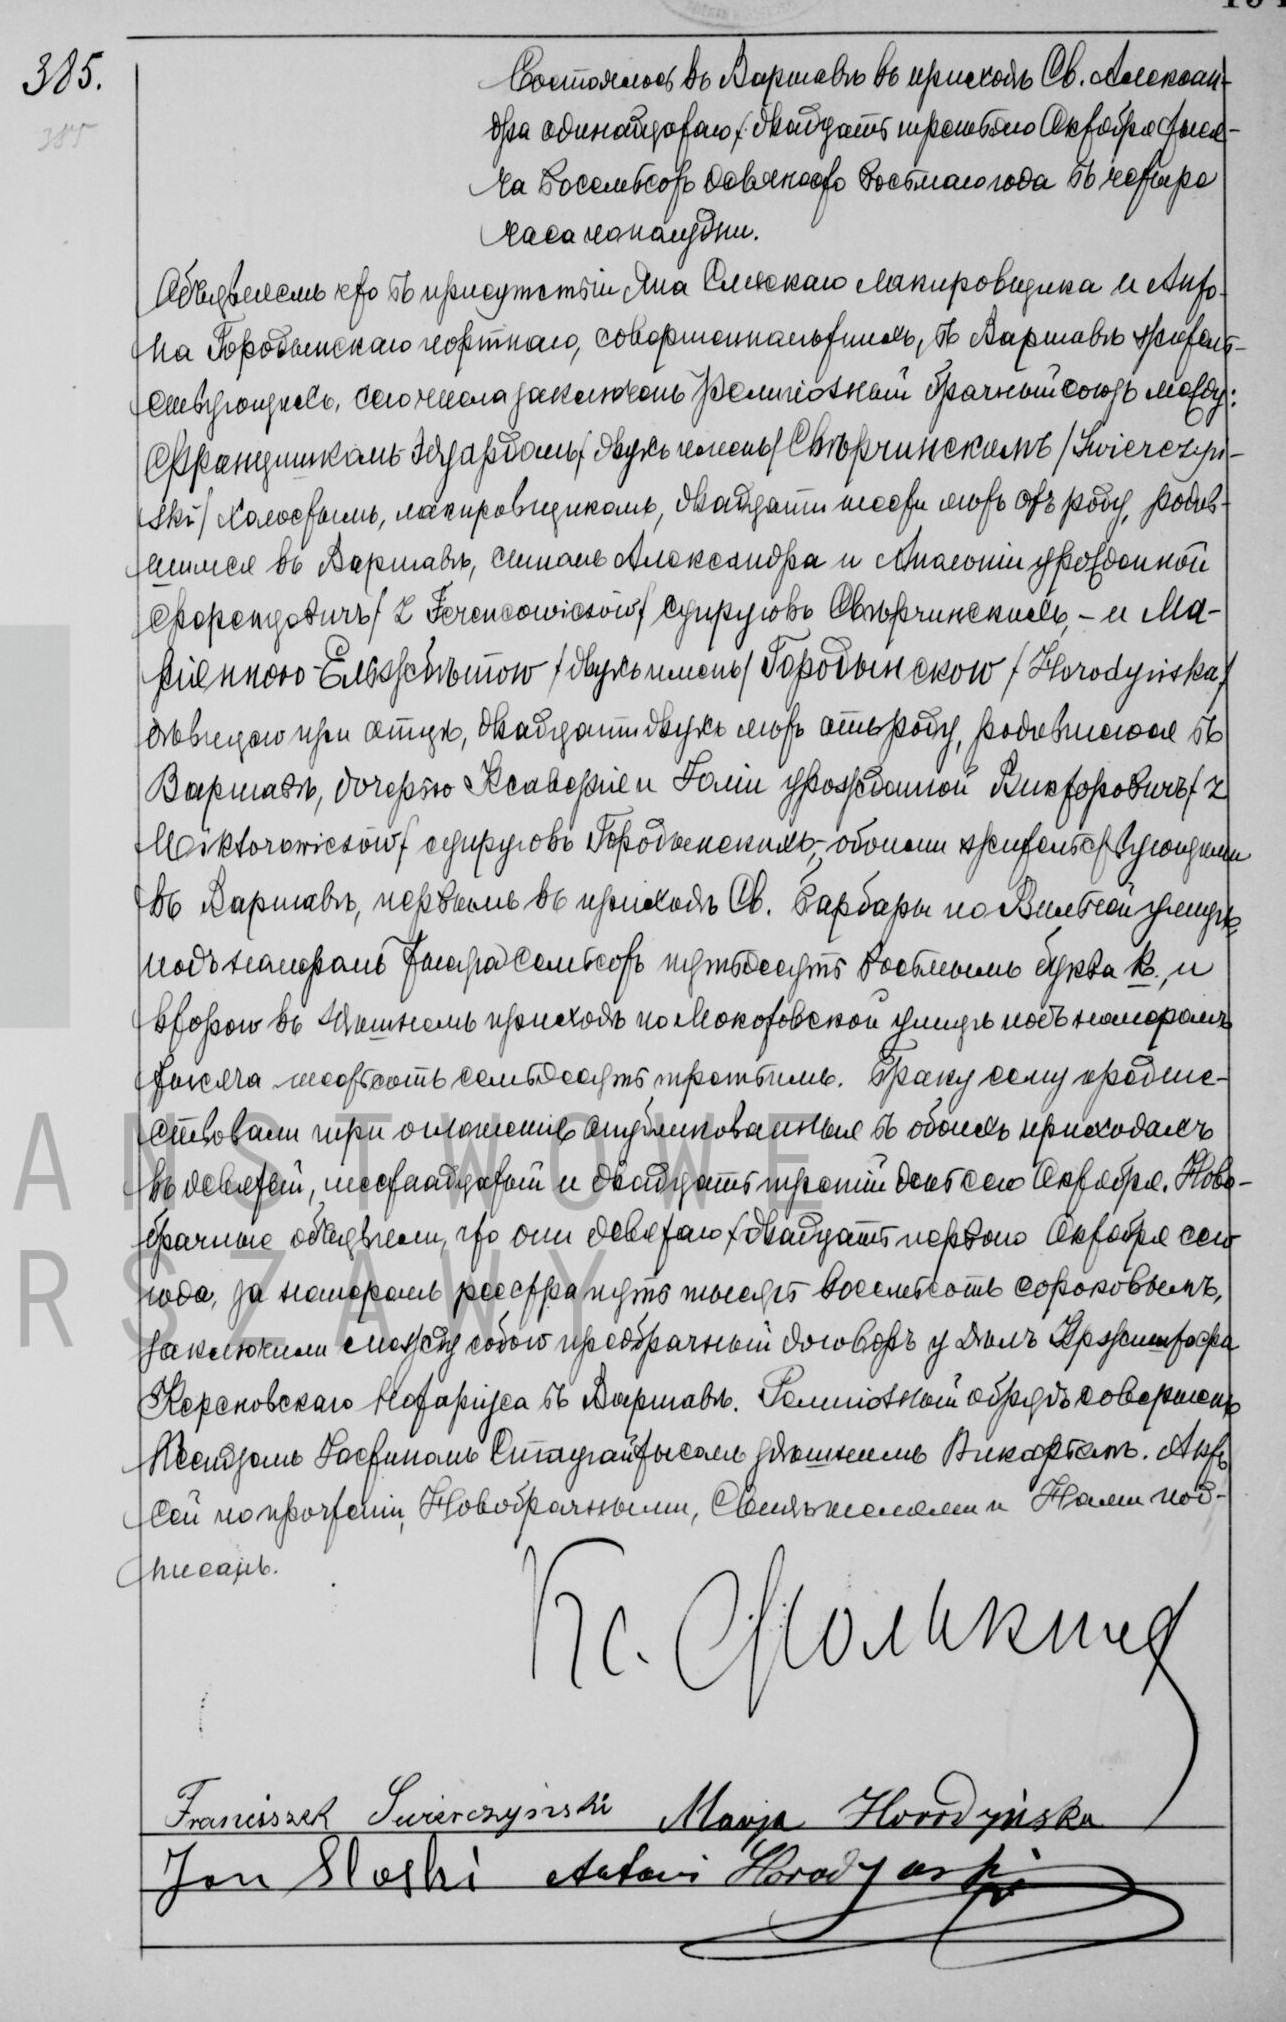 385.
385
Состоялось въ Варшавѣ въ приходѣ Св. Алексан-
дра одинадцатаго / двадцать третьяго Октября тыся-
ча восемьсотъ девяносто восьмаго года въ четыре
часа пополудни.
Объявляемъ что въ присутствіи Яна лакировщика и Анто-
на Городынскаго портнаго, совершеннолѣтнихъ, въ Варшавѣ жительс-
твующихъ, сего числа заключенъ религіозный брачный союзъ между:
Францишкомъ-Эдуардомъ / двухъ именъ / Свѣрчинскимъ / Świerczyń-
ski / холостымъ, лакировщикомъ, двадцати шести лѣтъ отъ роду, родив-
шимся въ Варшавѣ, сыномъ Александра и Аполоніи урожденной
Ференцовичъ / z Ferencowiczów / супруговъ Свѣрчинскихъ, – и Ма-
ріянною-Ельжбѣтою / двухъ именъ / Городынскою / Horodyńska /
дѣвицею при отцѣ, двадцати двухъ лѣтъ отъ роду, родившеюся въ
Варшавѣ, дочерью Ксаверія и урожденной Викторовичъ / z
Wiktorowiczów / супруговъ Городынскихъ, – обоими жительствующими
въ Варшавѣ, первымъ въ приходѣ Св. Барбары по улицѣ
подъ номеромъ тысяча семьсотъ пятьдесятъ восьмымъ буква и
второю въ здѣшнемъ приходѣ по Мокотовской улицѣ подъ номеромъ
тысяча шестьсотъ семьдесятъ третьимъ. Браку сему предше-
ствовали три оглашенія опубликованныя въ обоихъ приходахъ
въ девятый, шестнадцатый и двадцать третій дней сего Октября. Ново-
брачные объявили, что они девятаго / двадцать перваго Октября сего
года, за номеромъ реестра пять тысячъ восемьсотъ сороковымъ,
заключили между собою предбрачный договоръ у дѣлъ Кржиштофа
Нотаріуса въ Варшавѣ. Религіозный обрядъ совершенъ
Ксендзомъ здѣшнимъ Викаріемъ. Актъ
сей по прочтеніи, Новобрачными, Свидѣтелями и Нами под-
писанъ.
Кс.
Franciszek Świerczyński Marja Horodyńska
Jan Antoni Horodyński